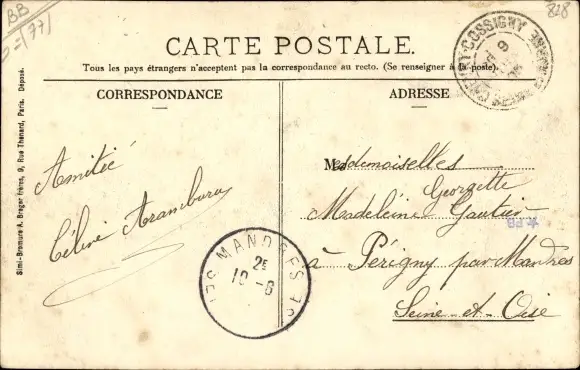 BB
(77)
828
CARTE POSTALE.
Tous les pays étrangers n'acceptent pas la correspondance au recto. (Se renseigner à la poste).
CORRESPONDANCE
ADRESSE
Simi-Bromure A. Breger frères, 9, Rue Thénard, Paris. Déposé.
Amitié
Céline Aramburu
Mesdemoiselles
Georgette
Madeleine Gautier
à Périgny par Mandres
Seine-et-Oise
COSSIGNY
MANDRES-LES-
2E
10-6